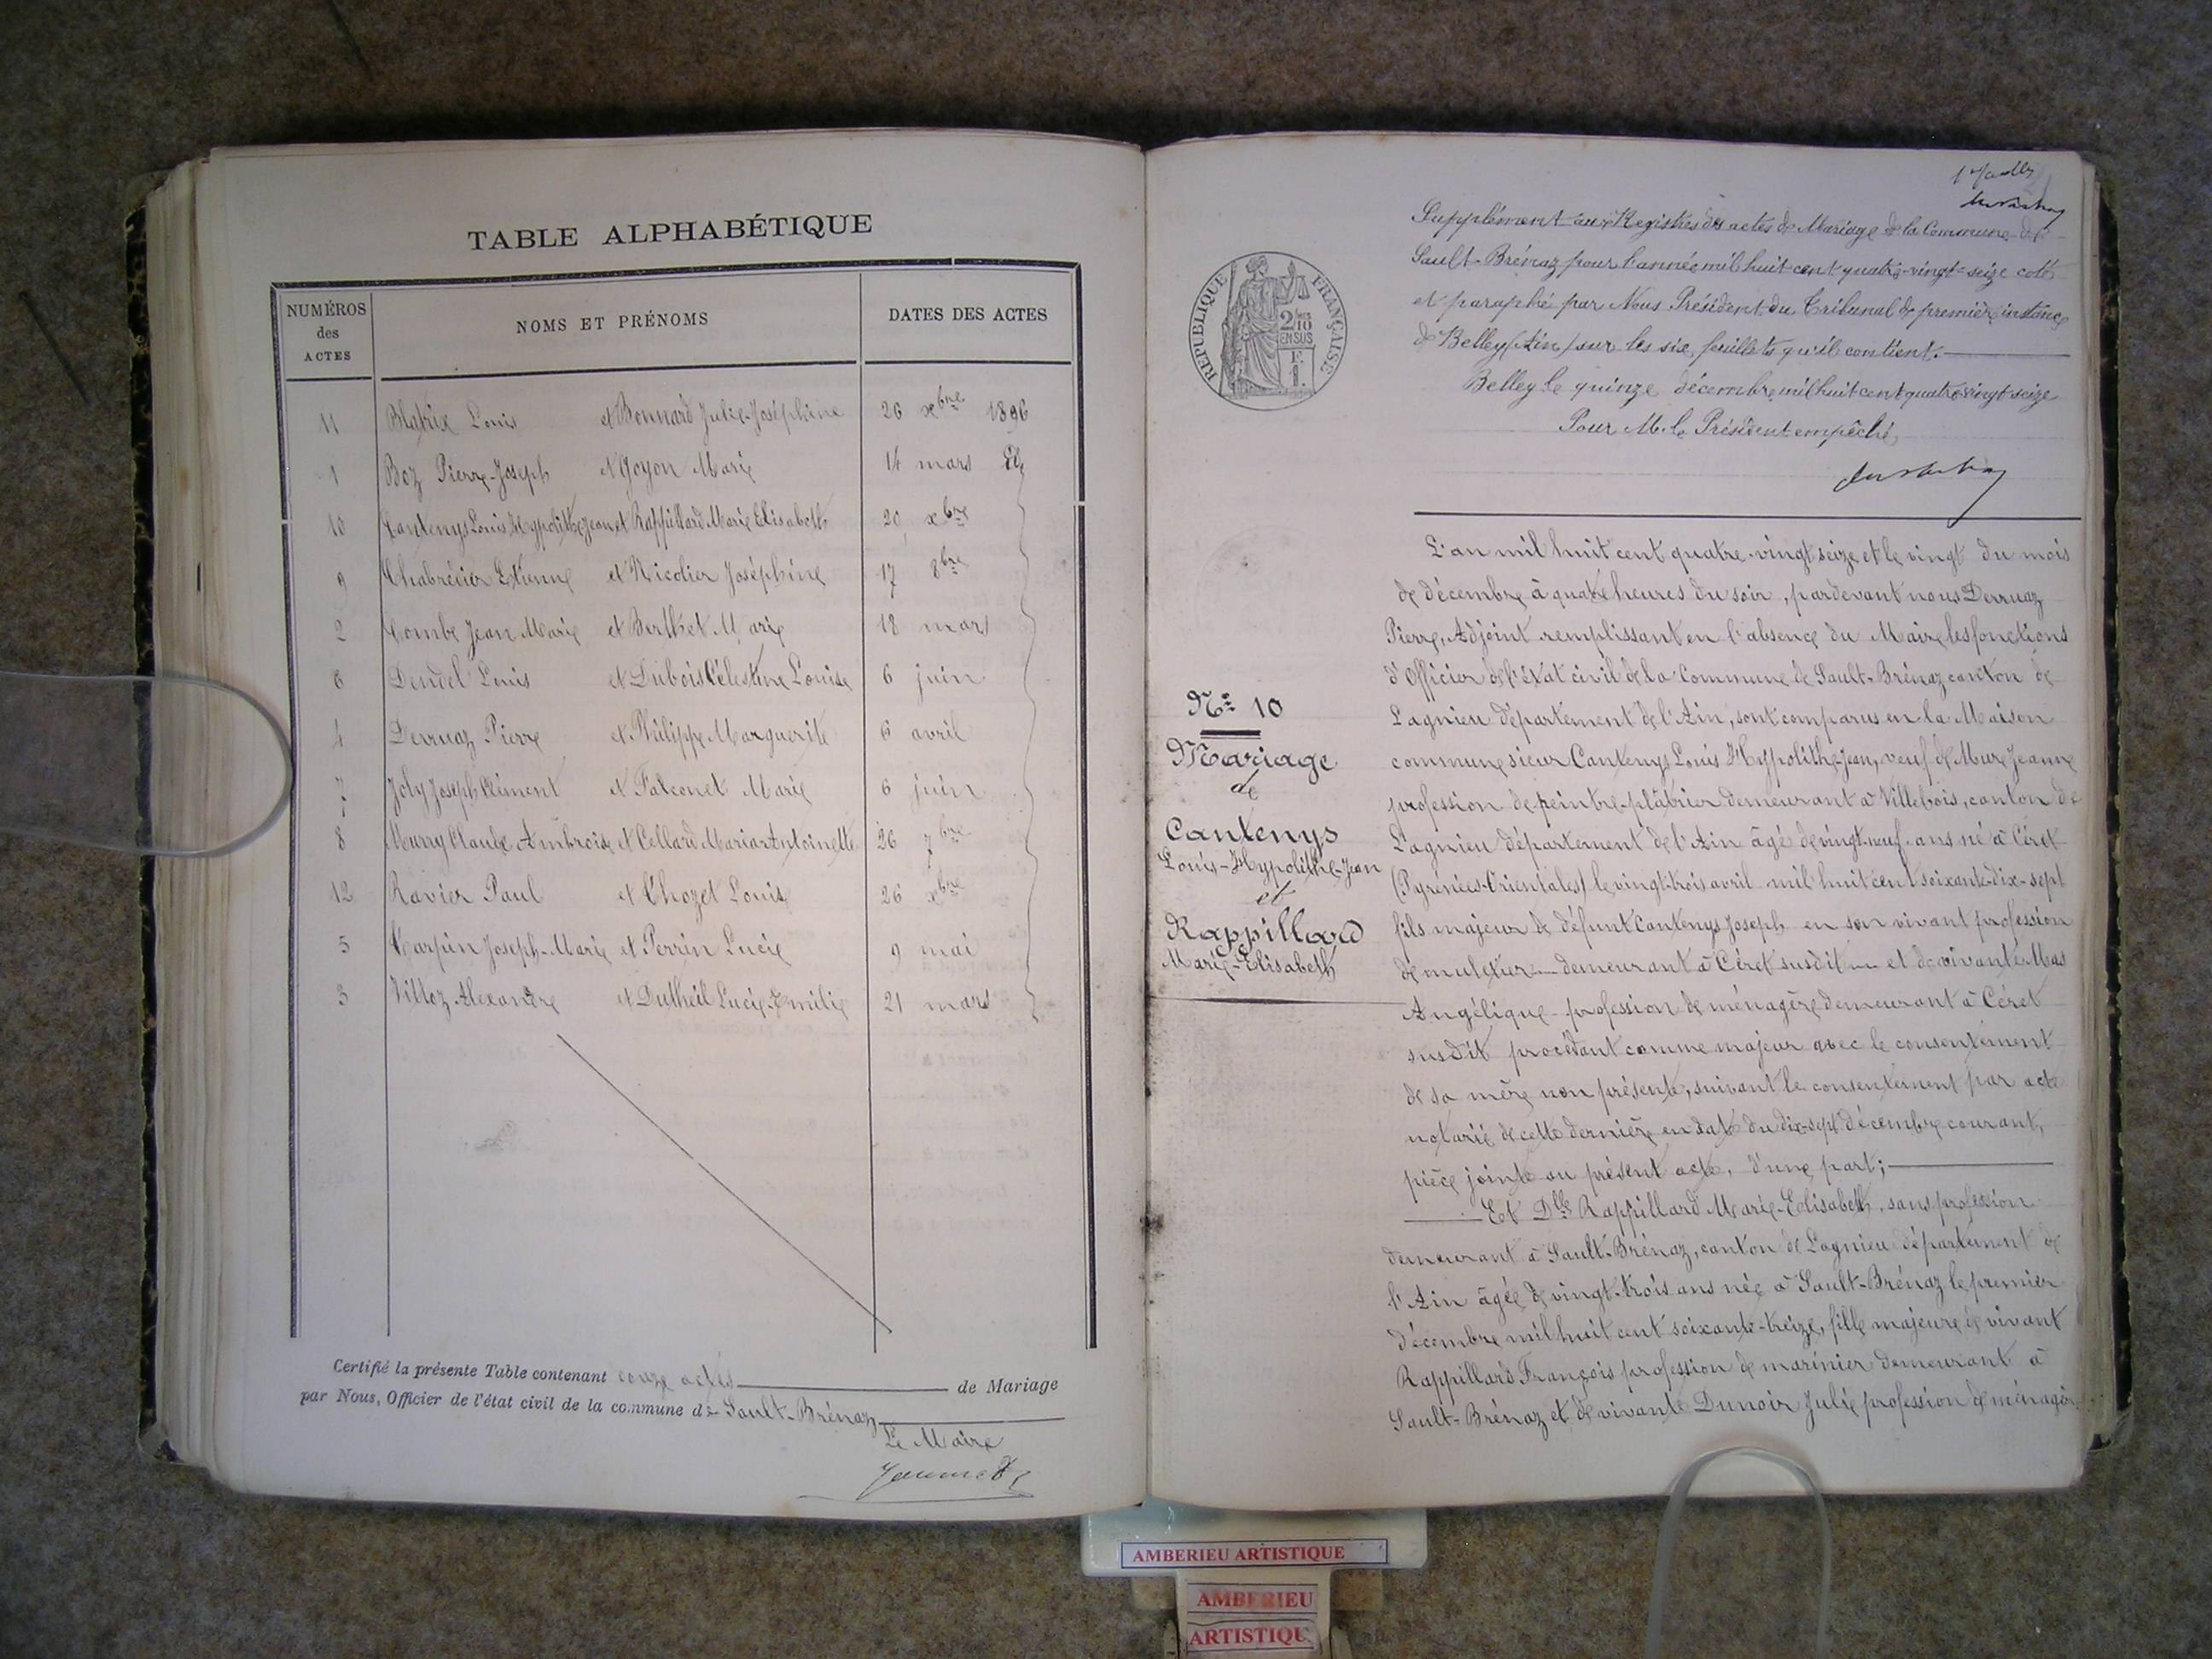 TABLE ALPHABÉTIQUE
NUMÉROS des ACTES NOMS ET PRÉNOMS DATES DES ACTES
11 Blatrix Louis et Bonnard Julie-Joséphine 26 xbre 1896
1 Boz Pierre-Joseph et Goyon Marie 14 mars
10 Cantenys Louis Hypolithe Jean et Rappillard Marie Elisabeth 20 xbre
9 Chabrésier Etienne et Nicolier Joséphine 17 8bre
2 Combe Jean Marie et Berthet Marie 18 mars
6 Dendel Louis et Dubois Célestine Louise 6 juin
4 Derruaz Pierre et Philippe Marguerite 6 avril
7 Joly Joseph Clément et Falconet Marie 6 juin
8 Murry Claude Ambroise et Cellard Maria Antoinette 26 7bre
12 Ravier Paul et Chozet Louise 26 xbre
5 Joseph-Marie et Perrin Lucie 9 mai
3 Villoz Alexandre et Dutheil Lucie-Emilie 21 mars
Certifié la présente Table contenant actes de Mariage
par Nous, Officier de l'état civil de la commune de Sault-Brénaz
Le Maire
1
Supplément aux Registres des actes de Mariage de la Commune de
Sault-Brénaz pour l'année mil huit cent quatre-vingt-seize coté
et paraphé par Nous Président du Tribunal de première instance
de Belley (Ain) sur les six feuillets qu'il contient.
Belley le quinze décembre mil huit cent quatre-vingt-seize
Pour M. le Président empêché,
REPUBLIQUE FRANÇAISE
2/10 EN SUS
F. 1.
L'an mil huit cent quatre-vingt seize et le vingt du mois
de décembre à quatre heures du soir, pardevant nous Derruaz
Pierre, Adjoint remplissant en l'absence du Maire les fonctions
d'Officier de l'état civil de la Commune de Sault-Brénaz canton de
Lagnieu département de l'Ain, sont comparus en la Maison
commune sieur Cantenys Louis Hypolithe Jean, veuf de Mure Jeanne
profession de peintre-plâtrier demeurant à Villebois, canton de
Lagnieu département de l'Ain âgé de vingt-neuf ans né à Céret
(Pyrénées-Orientales) le vingt-trois avril mil huit cent soixante-dix-sept
fils majeur de défunt Cantenys Joseph en son vivant profession
de muletier demeurant à Céret susdit et de vivante Mas
Angélique profession de ménagère demeurant à Céret
susdit procédant comme majeur avec le consentement
de sa mère non présente, suivant le consentement par acte
notarié de cette dernière en date du dix-sept décembre courant,
pièce jointe au présent acte, d'une part;
Et Dlle Rappillard Marie-Elisabeth, sans profession
demeurant à Sault-Brénaz, canton de Lagnieu département de
l'Ain âgée de vingt-trois ans née à Sault-Brénaz le premier
décembre mil huit cent soixante-treize, fille majeure de vivant
Rappillard François profession de marinier demeurant à
Sault-Brénaz et de vivante Dunoir Julie profession de ménagère
No 10
Mariage
de
Cantenys
Louis-Hypolithe-Jean
et
Rappillard
Marie-Elisabeth
AMBERIEU ARTISTIQUE
AMBERIEU
ARTISTIQU